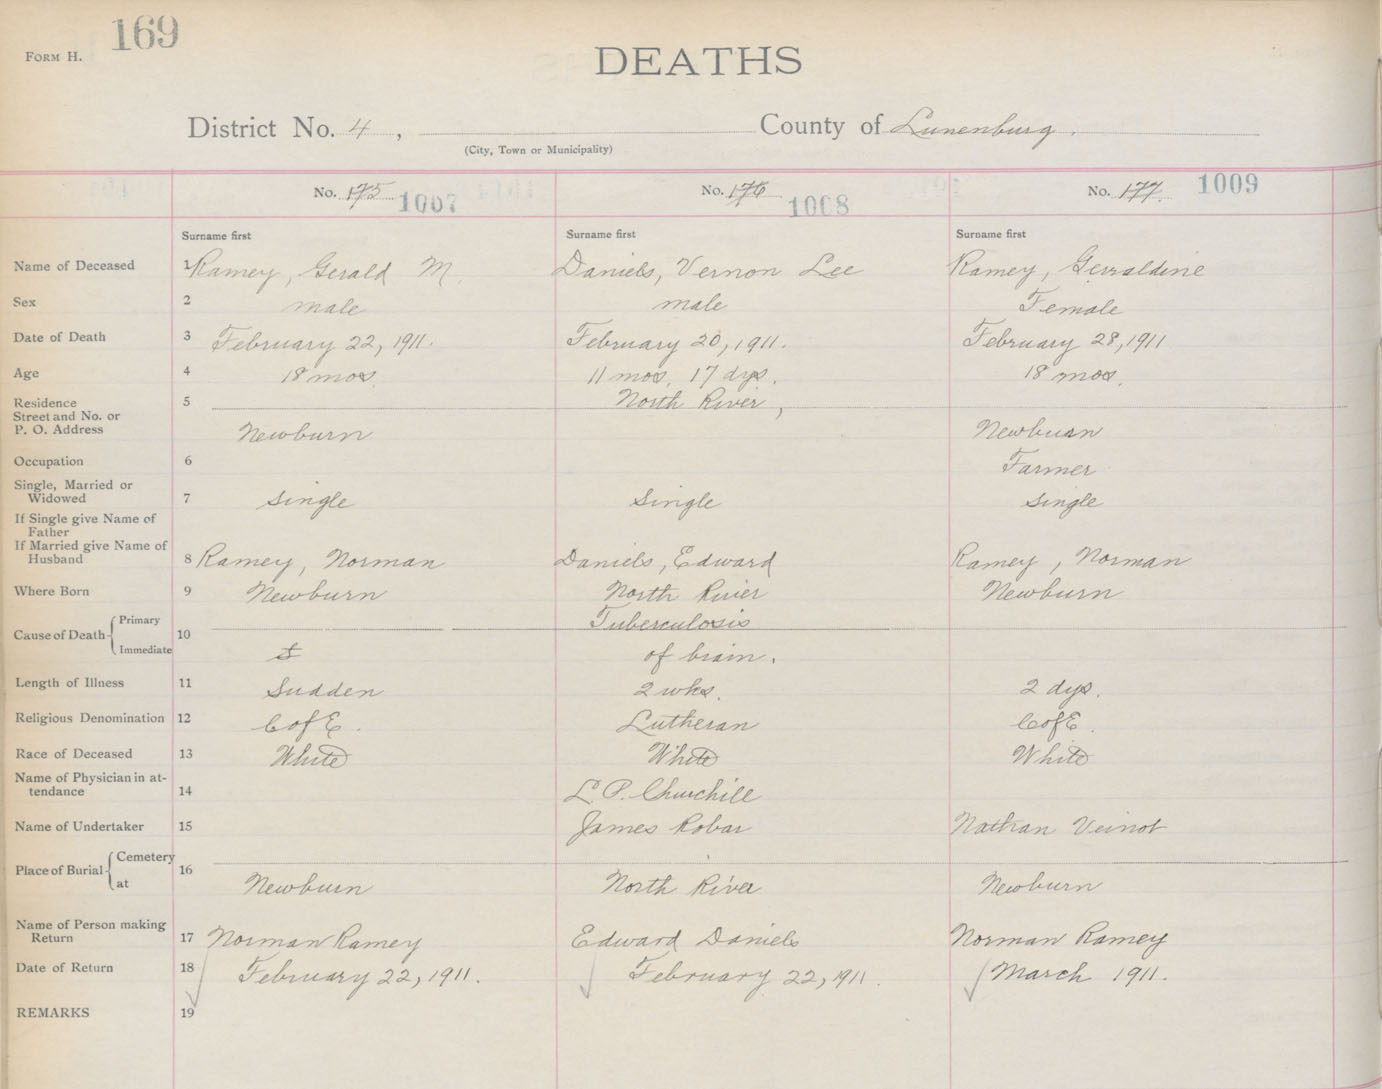 169
FORM H.
DEATHS
District No. 4, County of Lunenburg.
(City, Town or Municipality)
No. 175 1007 No. 176 1008 No. 177 1009
Surname first Surname first Surname first
Name of Deceased 1 Ramey, Gerald M. Daniels, Vernon Lee Ramey, Gerraldine
Sex 2 male male Female
Date of Death 3 February 22, 1911. February 20, 1911. February 28, 1911
Age 4 18 mos. 11 mos. 17 dys. 18 mos.
Residence 5 North River,
Street and No. or
P. O. Address Newburn Newburn
Occupation 6 Farmer
Single, Married or
Widowed 7 Single Single Single
If Single give Name of
Father
If Married give Name of
Husband 8 Ramey, Norman Daniels, Edward Ramey, Norman
Where Born 9 Newburn North River Newburn
Cause of Death Primary 10 Tuberculosis
Immediate of brain.
Length of Illness 11 Sudden 2 wks. 2 dys.
Religious Denomination 12 C of E. Lutheran C of E.
Race of Deceased 13 White White White
Name of Physician in at-
tendance 14 L. P. Churchill
Name of Undertaker 15 James Robar Nathan Veinot
Place of Burial Cemetery 16
at Newburn North River Newburn
Name of Person making
Return 17 Norman Ramey Edward Daniels Norman Ramey
Date of Return 18 February 22, 1911. February 22, 1911. March 1911.
REMARKS 19